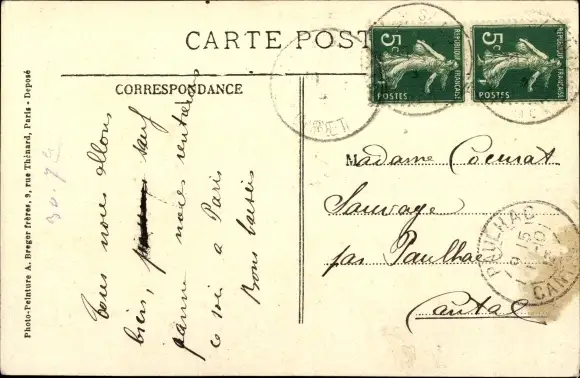 CARTE POST
CORRESPONDANCE
Tous nous allons
bien, sauf
panne nous rentrons
ce soir à Paris
Bons baisers
Madame Cocurat
Sauvage
par Paulhac
Cantal
Photo-Peinture A. Breger frères, 9, rue Thénard, Paris - Déposé
30.7
5c
REPUBLIQUE FRANÇAISE
POSTES
5c
REPUBLIQUE FRANÇAISE
POSTES
PAULHAC
CAN